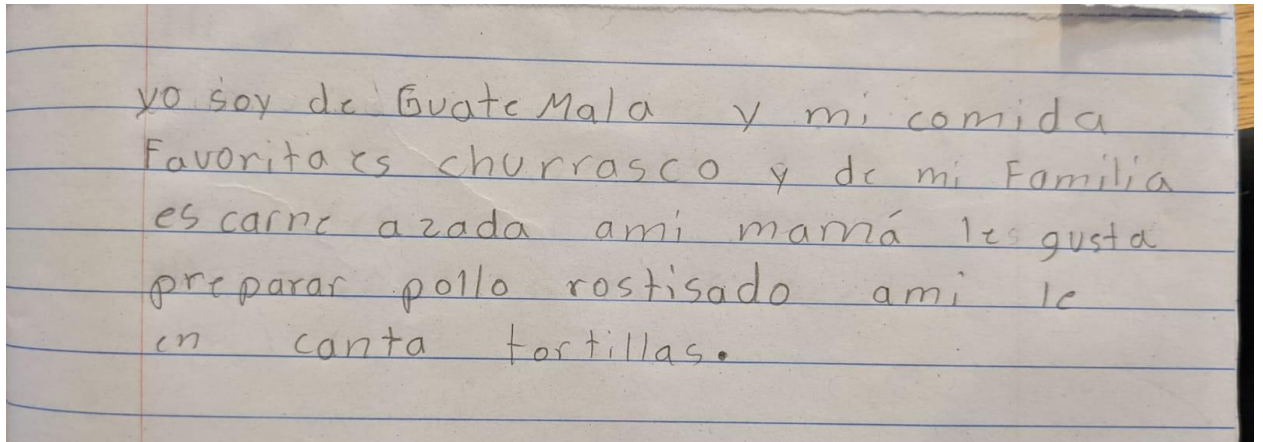 yo soy de Guate Mala y mi comida
Favorita es churrasco y de mi Familia
es carne azada ami mamá les gusta
preparar pollo rostisado ami le
en canta tortillas.